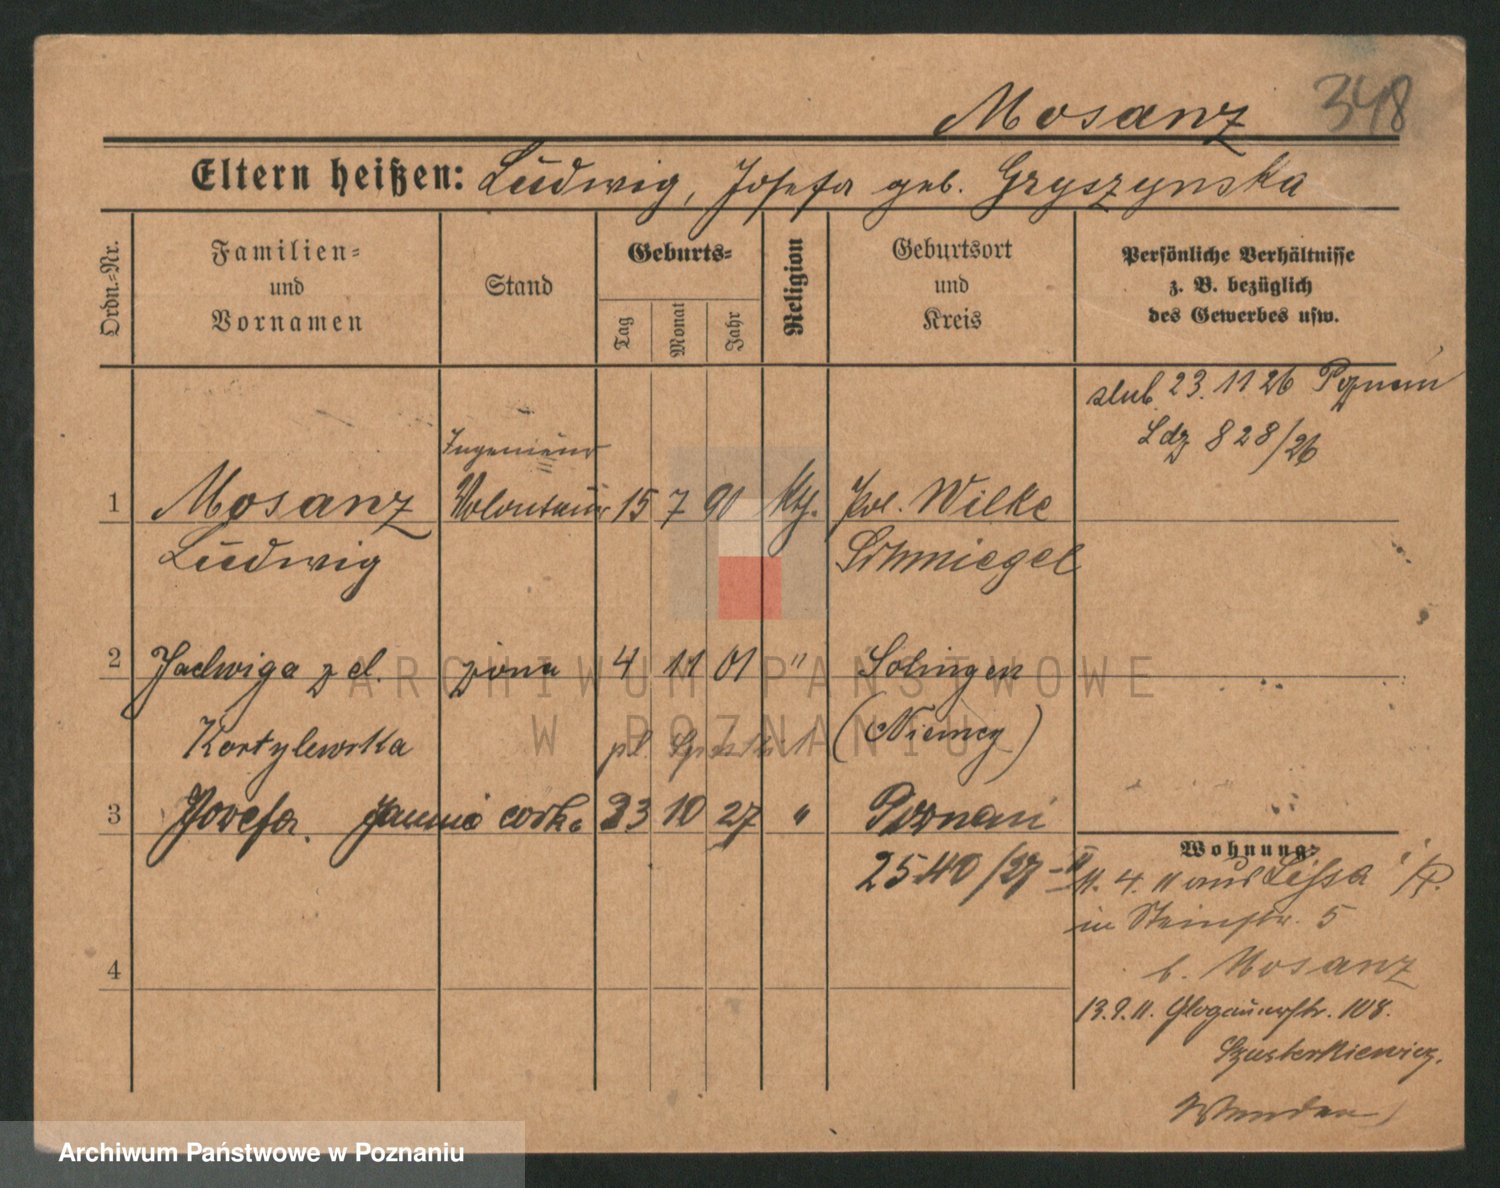 348
Mosanz
Eltern heißen: Ludwig, Josefa geb. Gryszynska
Ordn.-Nr.
Familien-
und
Vornamen
Stand
Geburts-
Tag
Monat
Jahr
Religion
Geburtsort
und
Kreis
Persönliche Verhältnisse
z. B. bezüglich
des Gewerbes usw.
slub 23.11 26 Poznań
Ldz 828/26
Ingenieur
1 Mosanz Volontair 15 7 90 kth. Pol. Wilke
Ludwig Schmiegel
2 Jadwiga z d. żona 4 11 01 " Solingen
Kortylewska (Niemcy)
3 Josefa. Janina córka 23 10 27 " Poznań
2540/27-II
4
Wohnung:
11. 4. 11 aus Lissa i/P.
in Steinstr. 5
b. Mosanz
13.9.11. Glogauerstr. 108.
Szusterkiewicz.
Wenden
ARCHIWUM PAŃSTWOWE
W POZNANIU
Archiwum Państwowe w Poznaniu